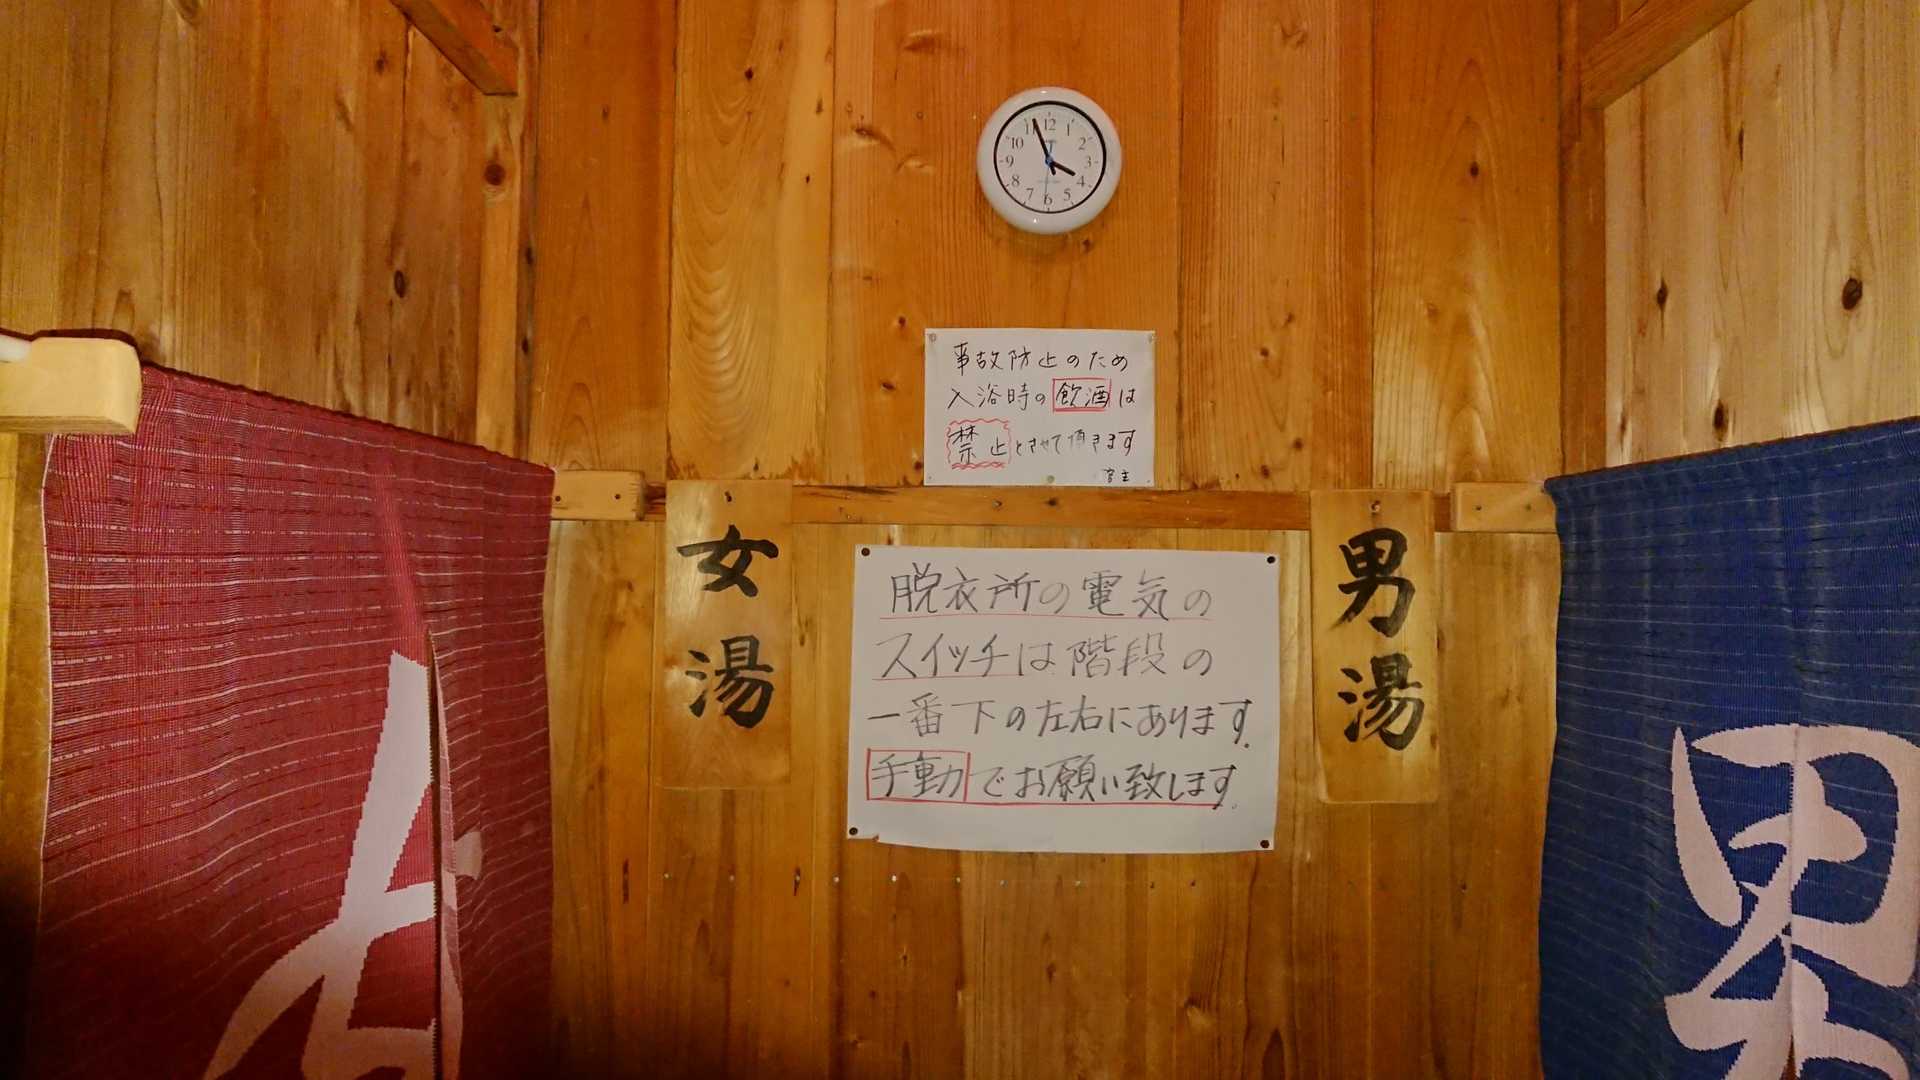 12
1
2
3
4
5
6
7
8
9
10
11
事故防止のため
入浴時の飲酒は
禁止とさせて頂きます
宿主
女湯
脱衣所の電気の
スイッチは階段の
一番下の左右にあります。
手動でお願い致します。
男湯
女
男